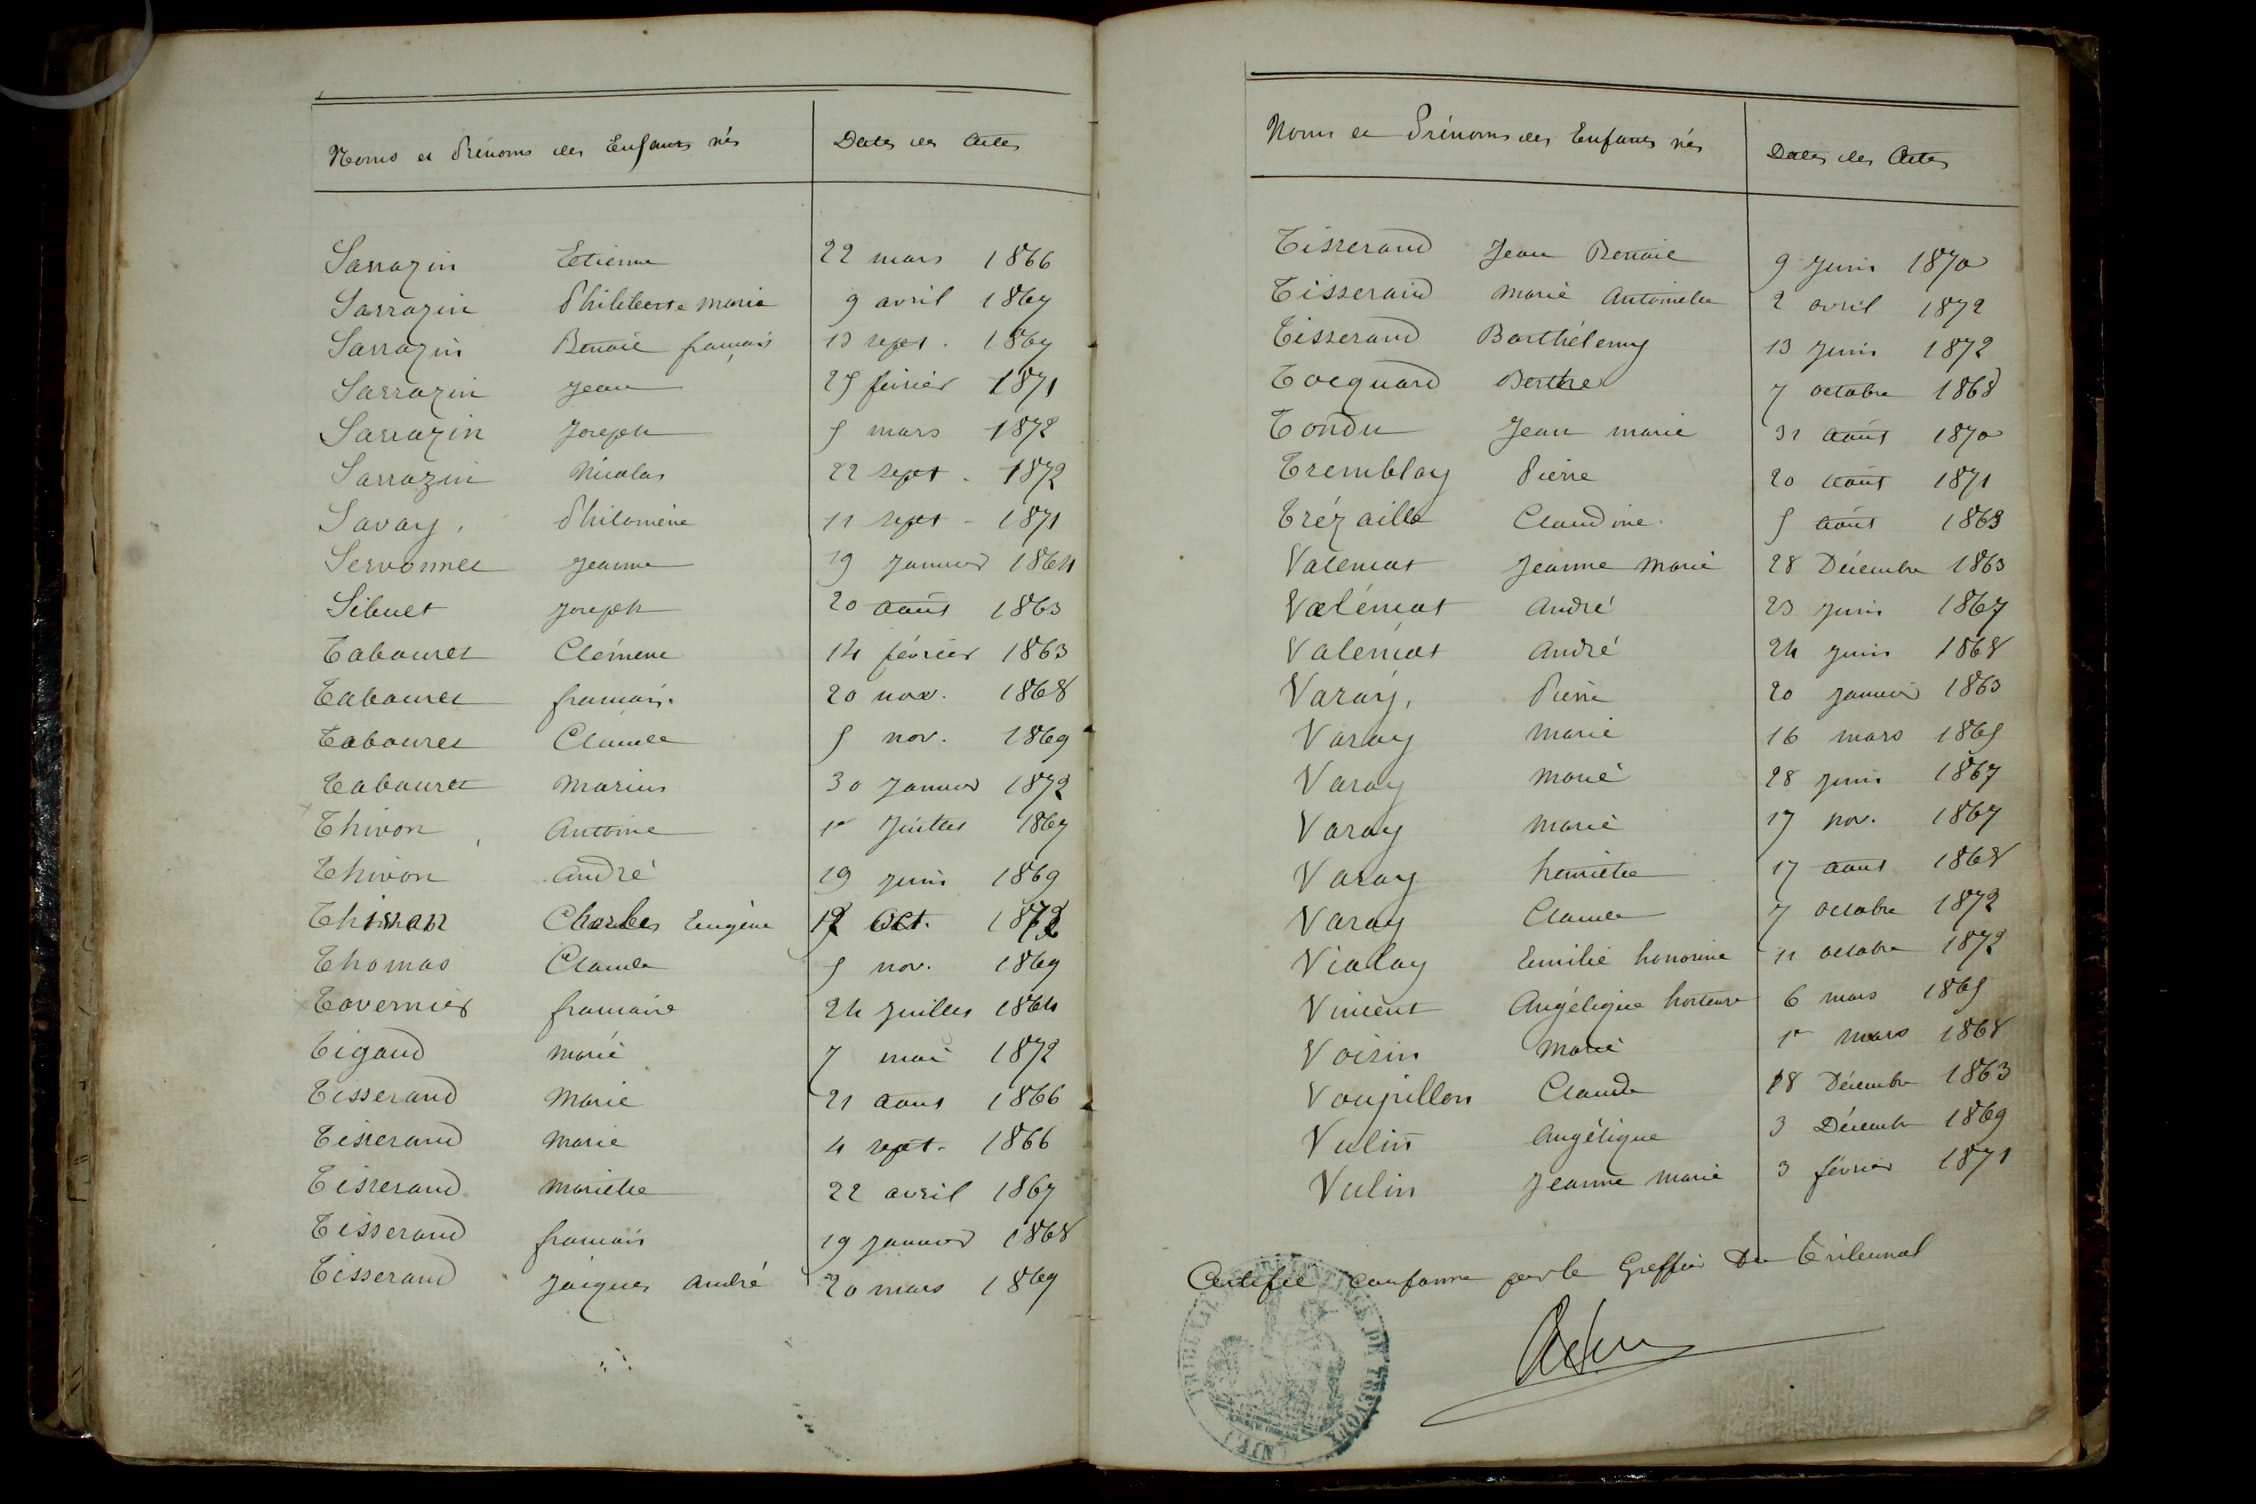 Noms et Prénoms des Enfants nés Dates des Actes
Sarrazin Etienne 22 mars 1866
Sarrazin Philiberte Marie 9 avril 1867
Sarrazin Benoit françois 13 sept. 1867
Sarrazin Jean 25 février 1871
Sarrazin Joseph 5 mars 1872
Sarrazin Nicolas 22 sept. 1872
Savay, Philomène 11 sept - 1871
Servonnet Jeanne 19 Janvier 1864
Sibuet Joseph 20 août 1863
Tabouret Clémence 14 février 1863
Tabouret françois. 20 nov. 1868
Tabouret Claude 5 nov. 1869
Tabouret Marius 30 Janvier 1872
Thivon, Antoine 1r Juillet 1867
Thivon André 19 juin 1869
Charles Eugène oct.
Thomas Claude 5 nov. 1869
Tavernier françoise 24 juillet 1864
Tigaud Marie 7 mai 1872
Tisserand Marie 21 aout 1866
Tisserand Marie 4 sept. 1866
Tisserand Mariette 22 avril 1867
Tisserand françois 19 janvier 1868
Tisserand Jacques André 20 mars 1869
Noms et Prénoms des Enfants nés Dates des Actes
Tisserand Jean Benoit 9 Juin 1870
Tisserand Marie Antoinette 2 avril 1872
Tisserand Barthélemy 13 Juin 1872
Tocquard Berthe 7 octobre 1868
Tondu Jean marie 31 août 1870
Tremblay Pierre 20 août 1871
Trézaille Claudine 5 août
Valémat Jeanne Marie 28 Décembre 1863
Valémat André 23 juin 1867
Valémat André 24 juin 1868
Varay, Pierre 20 Janvier 1863
Varay Marie 16 mars 1865
Varay Marie 28 juin 1867
Varay Marie 17 nov. 1867
Varay henriette 17 aout 1868
Varay Claude 7 octobre 1872
Vialay Emilie honorine 11 octobre 1872
Vincent Angélique hortense 6 mars 1865
Voisin Marie 1r mars 1868
Voupillon Claude 18 Décembre 1863
Vulin Angélique 3 Décembre 1869
Vulin Jeanne Marie 3 février 1871
Certifié conforme par le Greffier Du Tribunal
TRIBUNAL DE TREVOUX (AIN)